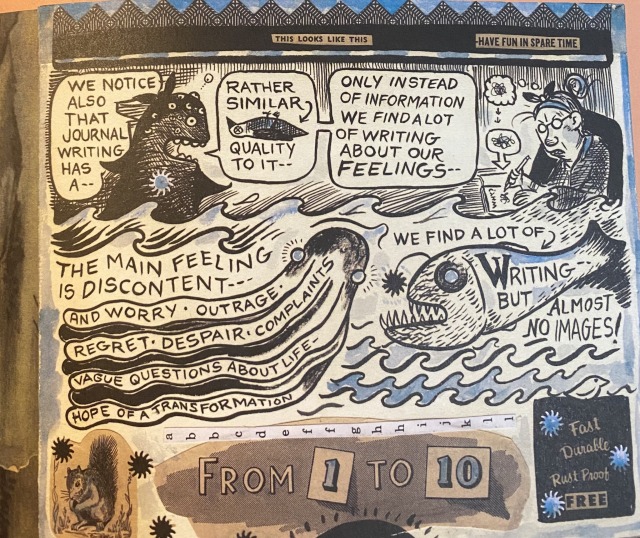 THIS LOOKS LIKE THIS
HAVE FUN IN SPARE TIME
WE NOTICE
ALSO
THAT
JOURNAL
WRITING
HAS
A--
RATHER
SIMILAR
QUALITY
TO IT--
ONLY INSTEAD
OF INFORMATION
WE FIND A LOT
OF WRITING
ABOUT OUR
FEELINGS--
THE MAIN FEELING
IS DISCONTENT---
AND WORRY · OUTRAGE ·
REGRET · DESPAIR · COMPLAINTS
VAGUE QUESTIONS ABOUT LIFE-
HOPE OF A TRANSFORMATION
WE FIND A LOT OF
WRITING--
BUT ALMOST
NO IMAGES!
a b b c d e f f g h h i j k l l
FROM 1 TO 10
Fast
Durable
Rust Proof
FREE